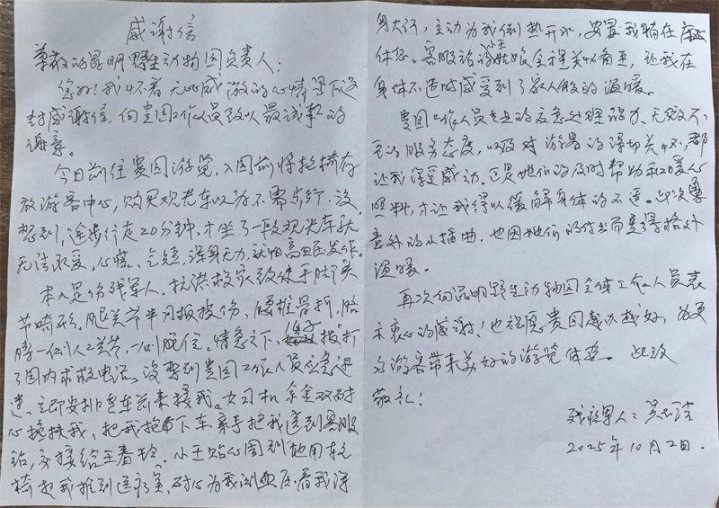 感谢信
尊敬的昆明野生动物园负责人：
您好！我怀着无比感激的心情写下这
封感谢信，向贵园工作人员致以最诚挚的
谢意。
今日前往贵园游览，入园前将轮椅存
放游客中心，购买观光车以为不需步行，没
想到，徒步行走20分钟，才坐了一段观光车就
无法承受，心慌、气短，浑身无力，
本人是伤残军人，抗洪救家致使手脚关
节畸形，腰椎骨折，胳
膊一侧人工关节，一侧脱位。情急之下，拨打
了园内求救电话。没想到贵园工作人员应急迅
速，立即安排电车前来接我。女司机
心搀扶我，把我抱下车亲手把我送到客服
站，交接给王春玲。小王贴心周到地用轮
椅把我推到医务室，耐心为我测血压，看我浑
身大汗，主动为我倒热开水，安置我躺在
休息。客服谢姑娘全程关心备至，让我在
身体不适时感受到了家人般的温暖。
贵园工作人员专业的应急处理能力、无微不
至的服务态度，以及对游客的深切关怀，都
让我深受感动。正是他们的及时帮助和暖心
照料，才让我得以缓解身体的不适。这次
意外的小插曲，也因他们的付出而变得格外
温暖。
再次向昆明野生动物园全体工作人员表
示衷心的感谢！也祝愿贵园越办越好，为更
多游客带来美好的游览体验。 此致
敬礼！
残疾军人：
2025年10月2日.